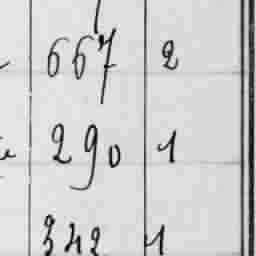 667 2
290 1
342 1